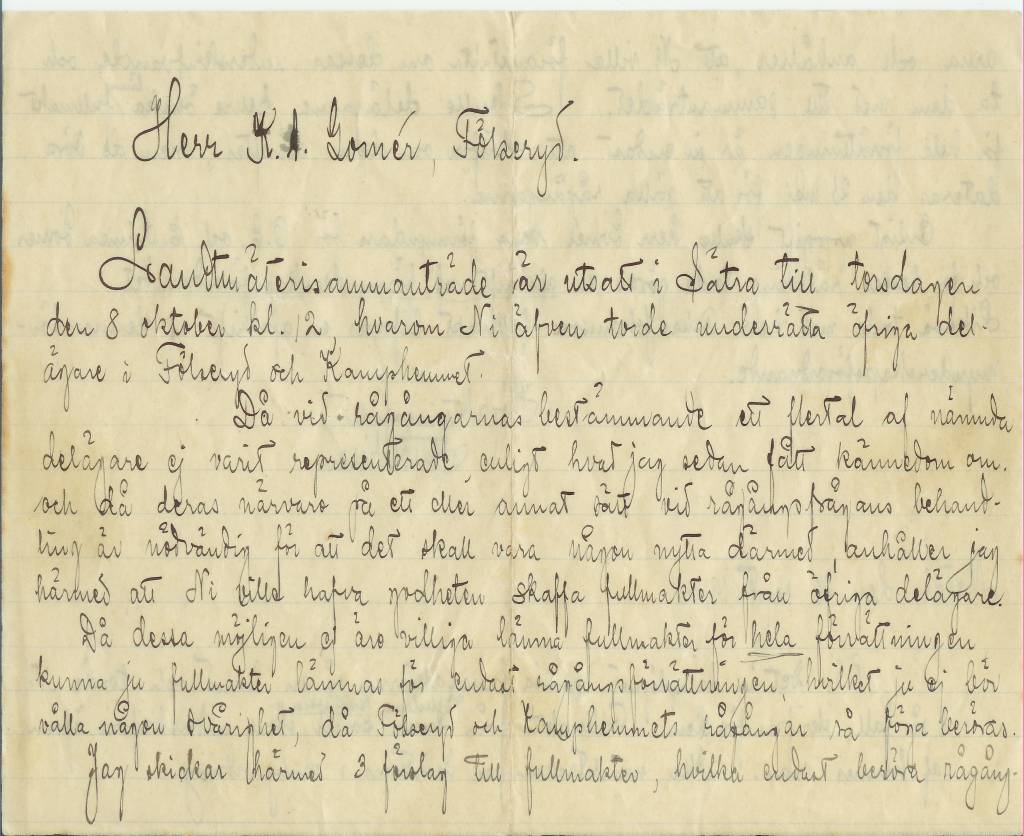 Herr K. A. Gomér, Fölseryd.
Landtmäterisammanträde är utsatt i Sätra till torsdagen
den 8 oktober kl. 12, hvarom Ni äfven torde underrätta öfriga del-
ägare i Fölseryd och Kamphemmet.
Då vid rågångarnas bestämmande ett flertal af nämnda
delägare ej varit representerade enligt hvad jag sedan fått kännedom om.
och då deras närvaro på ett eller annat sätt vid rågångsfrågans behand-
ling är nödvändig för att det skall vara någon nytta därmed, anhåller jag
härmed att Ni ville hafva godheten skaffa fullmakter från öfriga delägare.
Då dessa möjligen ej äro villiga lämna fullmakter för hela förrättningen
kunna ju fullmakter lämnas för endast rågångsförrättningen, hvilket ju ej bör
vålla någon svårighet, då Fölseryd och Kamphemmets rågångar så föga beröras.
Jag skickar härmed 3 förslag till fullmakter, hvilka endast beröra rågång-